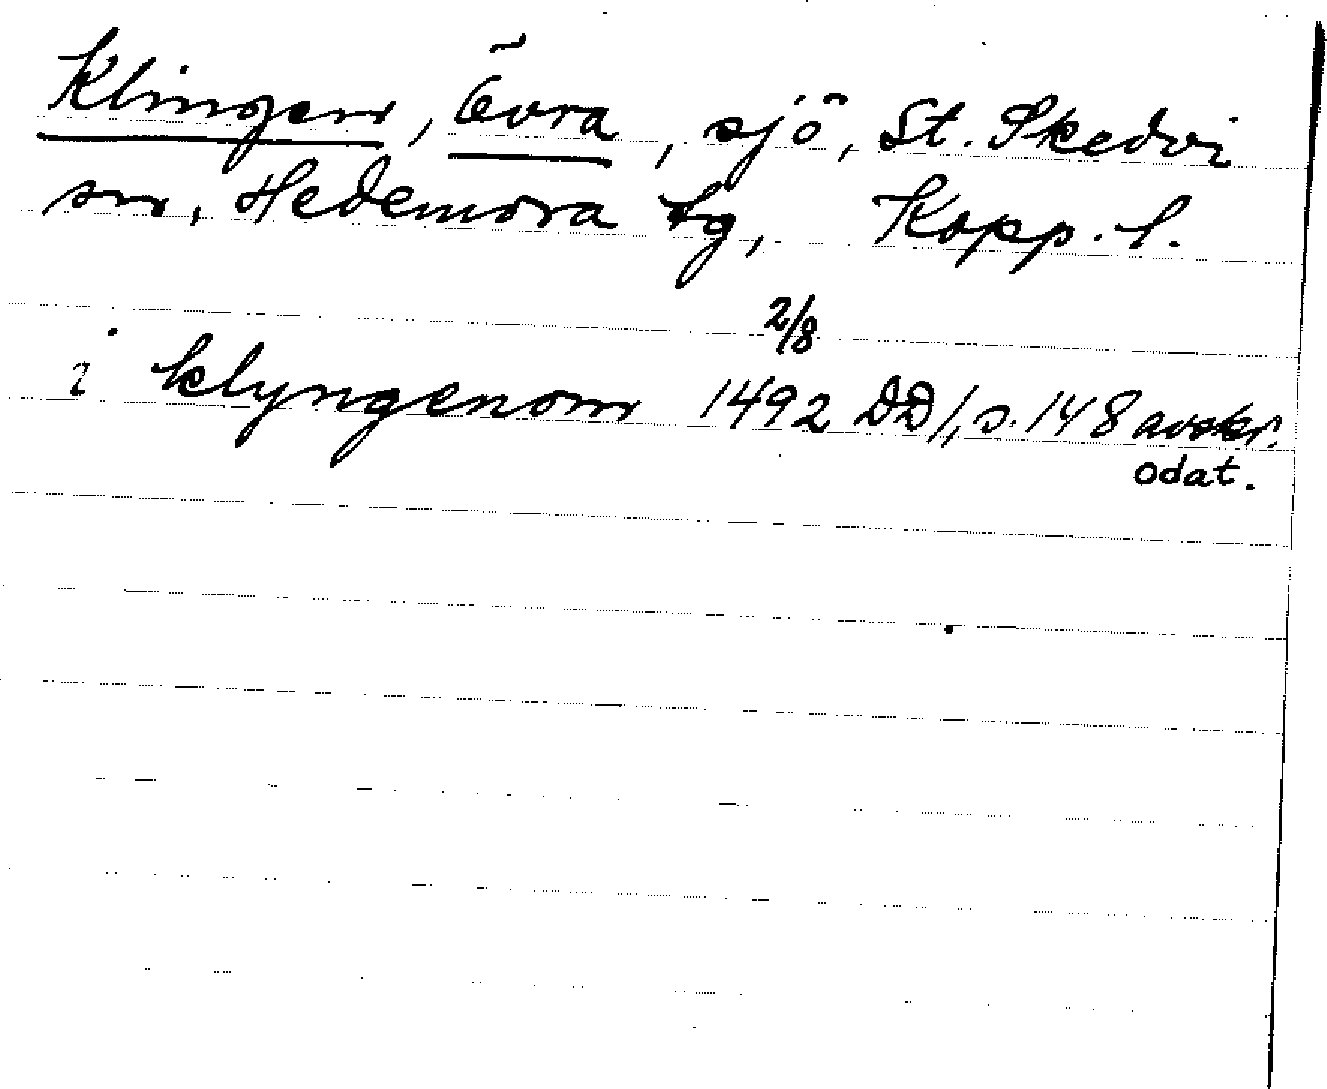 Klingen, Övra, sjö, St. Skedvi
sn, Hedemora tg, Kopp. l.
2/8
i klyngenom 1492 DD/, s. 148 avskr.
odat.